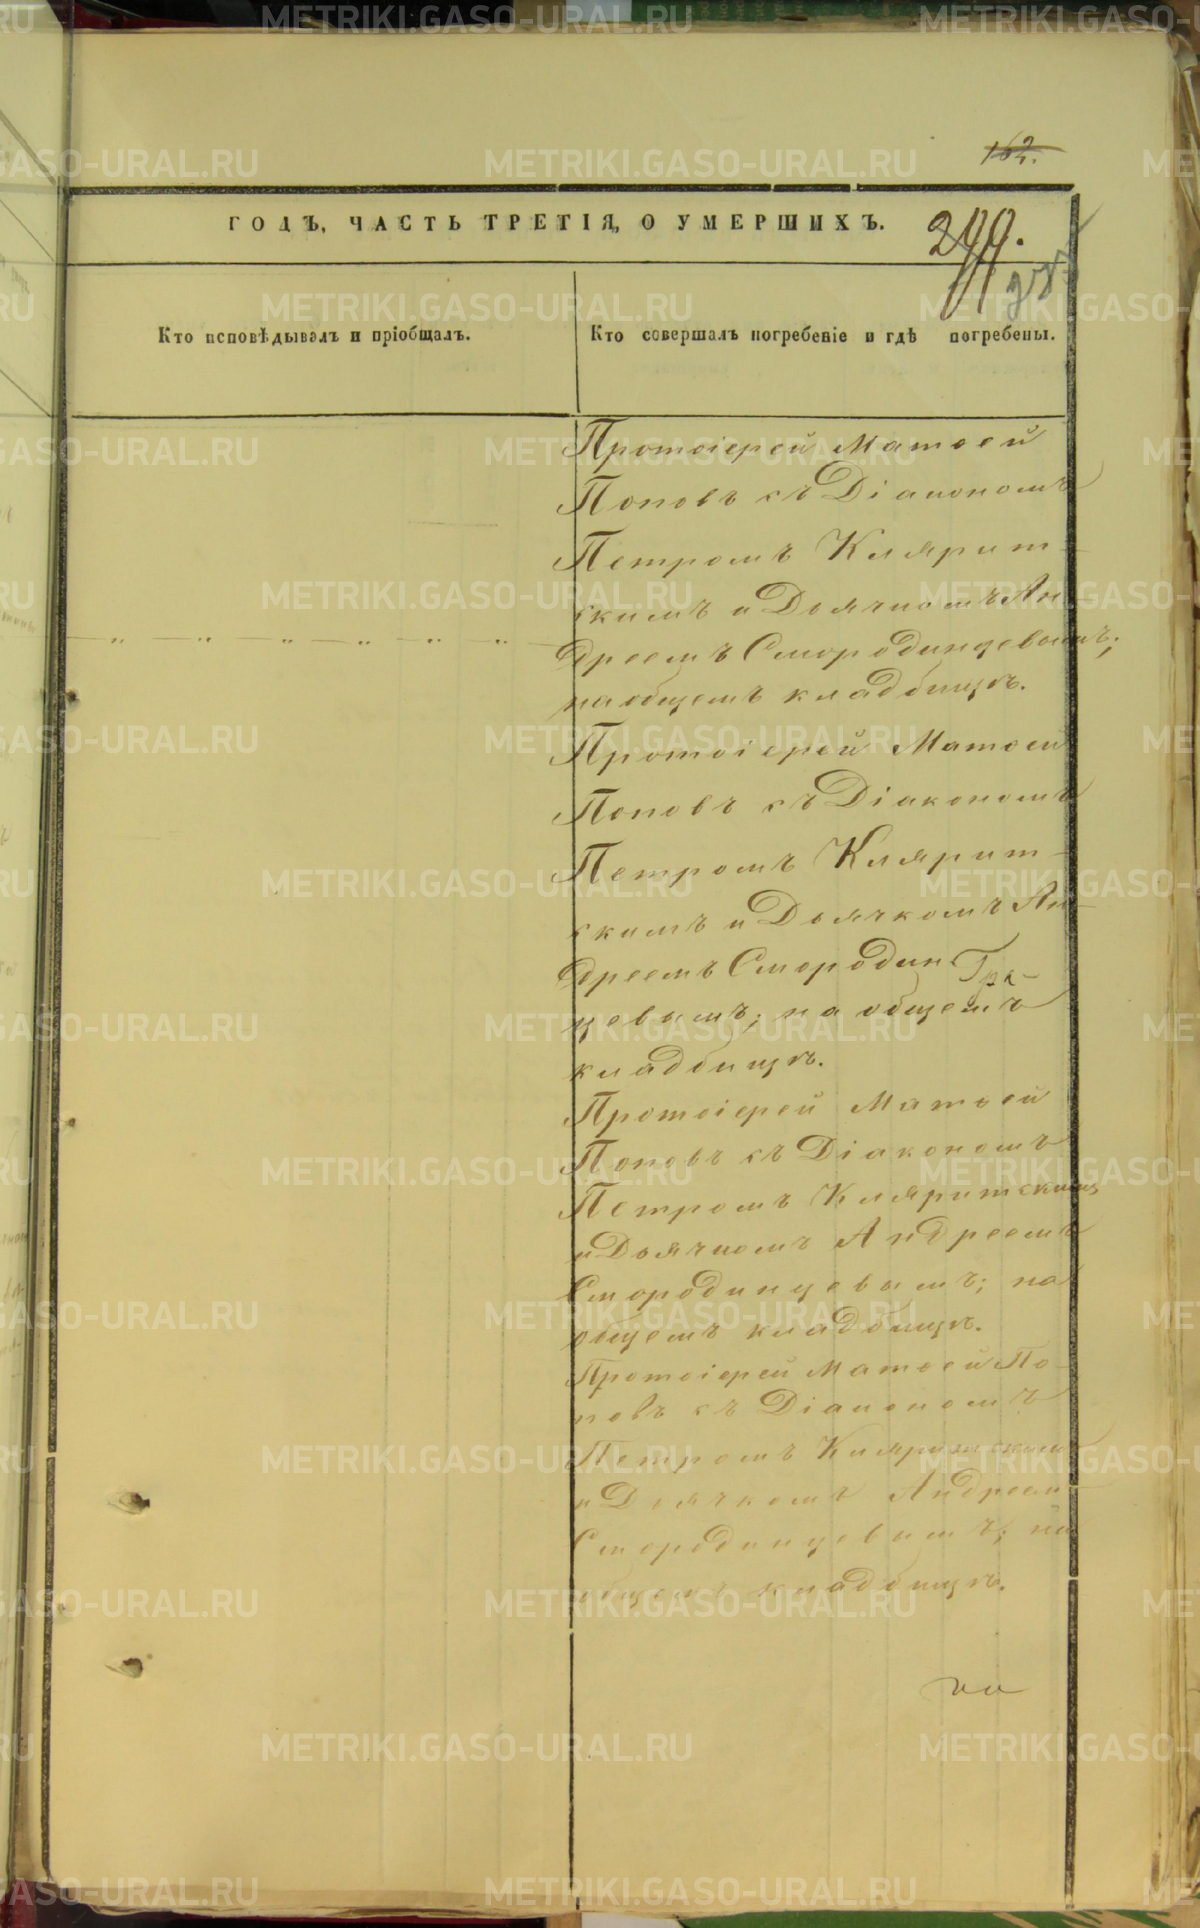 162.
ГОДЪ, ЧАСТЬ ТРЕТІЯ, О УМЕРШИХЪ.
Кто исповѣдывалъ и пріобщалъ.
Кто совершалъ погребеніе и гдѣ погребены.
Протоіерей Матѳей
Поповъ съ Діакономъ
Петромъ Кляритъ-
скимъ и Дьячкомъ Ан-
дреемъ Смородинцевымъ;
на общемъ кладбищѣ.
Протоіерей Матѳей
Поповъ съ Діакономъ
Петромъ Клярит-
скимъ и Дьячкомъ Ан-
дреемъ Смородин-
цевымъ; на общемъ
кладбищѣ.
Протоіерей Матѳей
Поповъ съ Діакономъ
Петромъ Кляритскимъ
и Дьячкомъ Андреемъ
Смородинцевымъ; на
общемъ кладбищѣ.
Протоіерей Матѳей По-
повъ съ Діакономъ
Петромъ Кляритскимъ
и Дьячкомъ Андреем
Смородинцевымъ; на
общемъ кладбищѣ.
METRIKI.GASO-URAL.RU